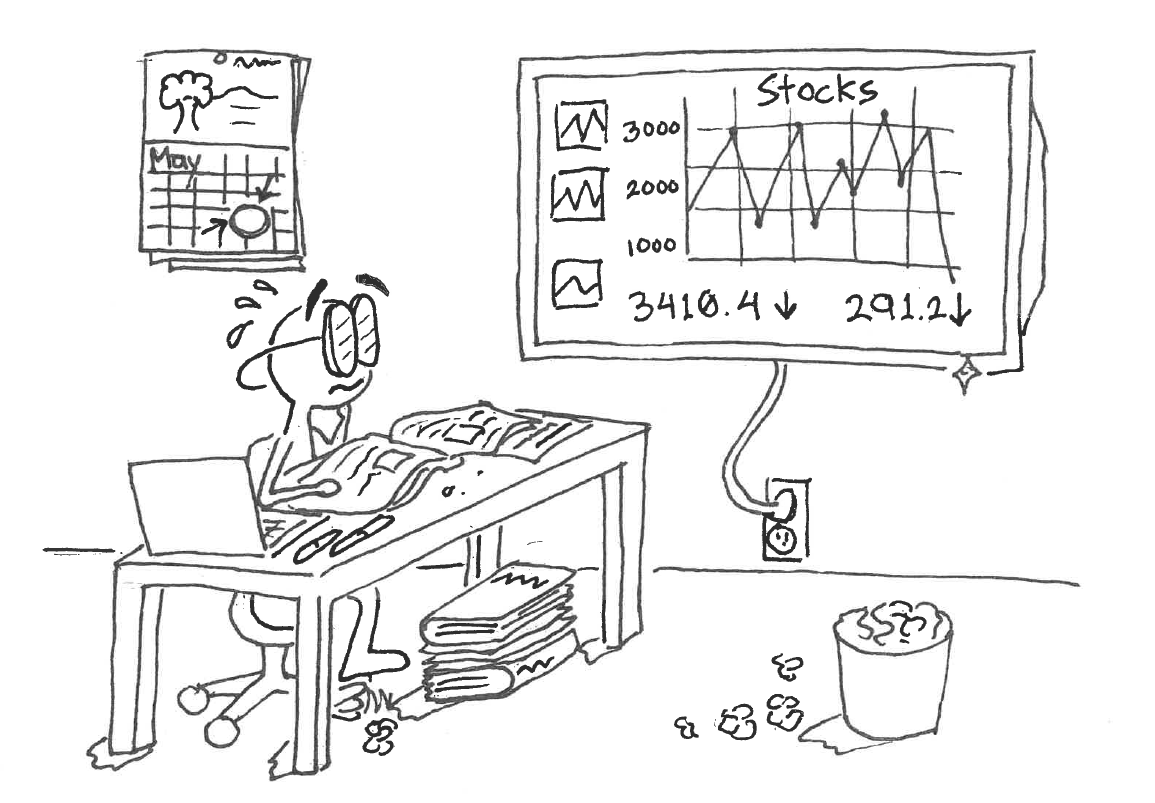 May
Stocks
3000
2000
1000
3410.4 ↓ 291.2↓